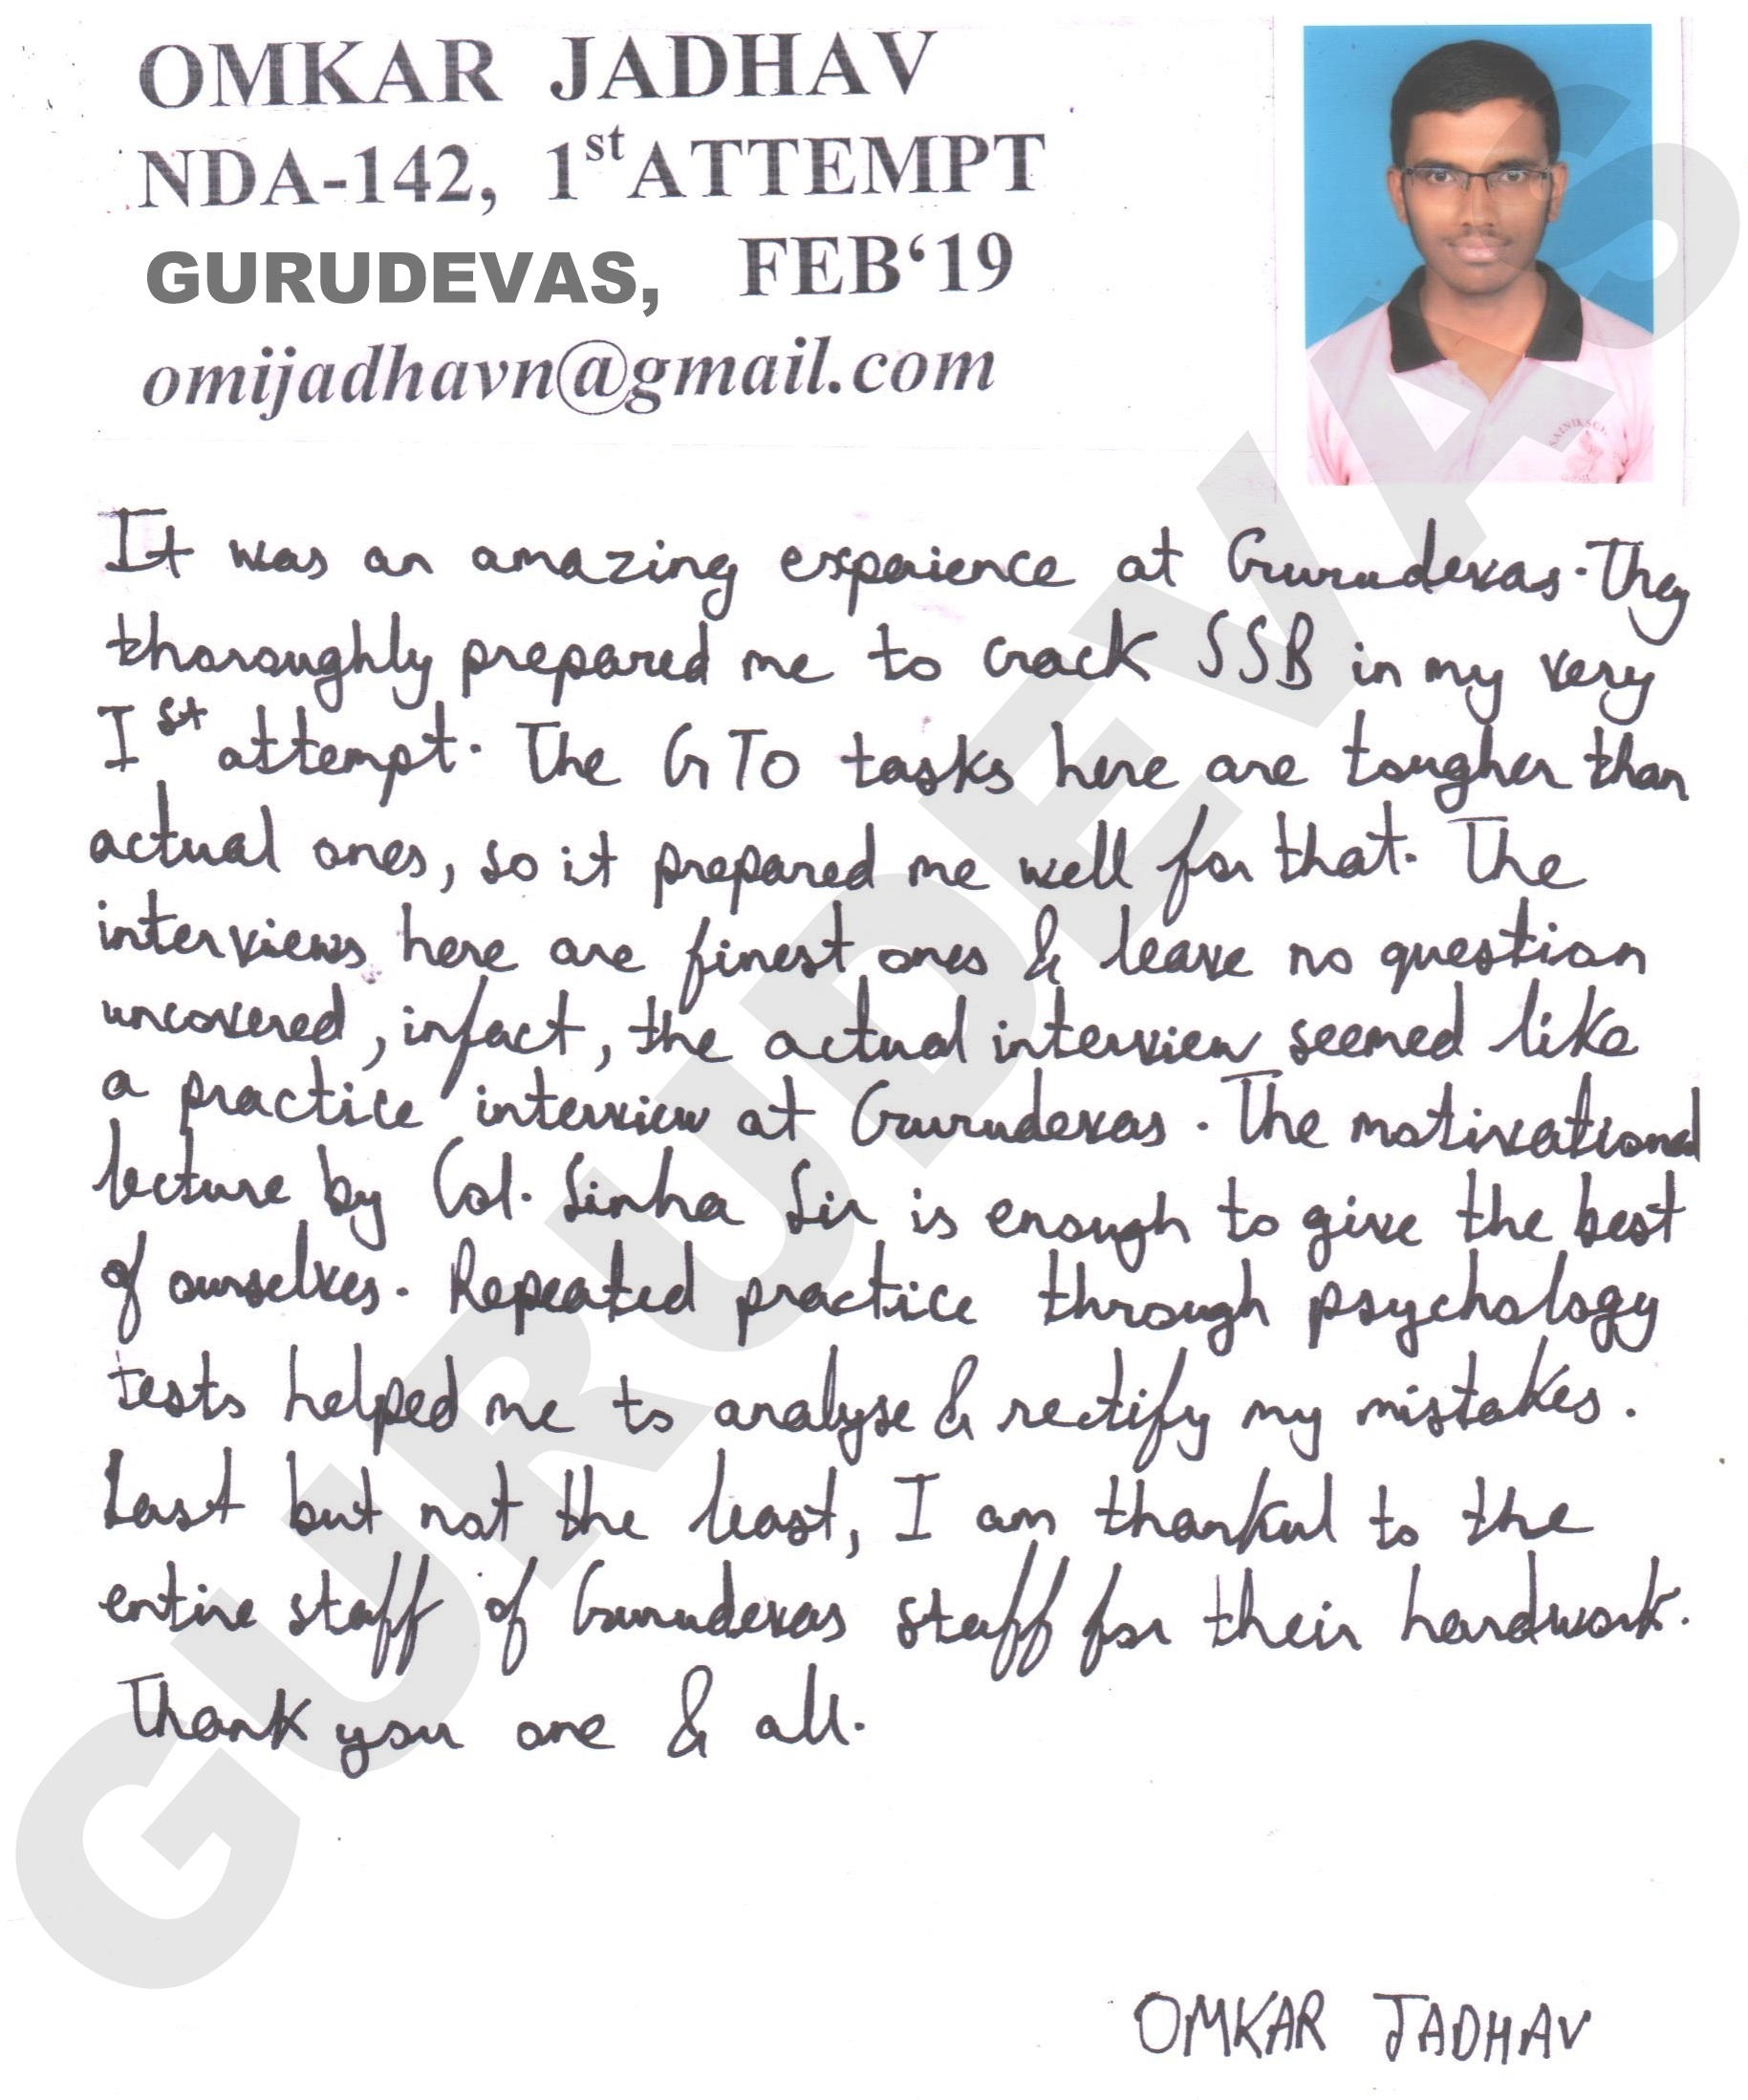 OMKAR JADHAV
NDA-142, 1st ATTEMPT
GURUDEVAS, FEB'19
omijadhavn@gmail.com
It was an amazing experience at Gurudevas. They
thoroughly prepared me to crack SSB in my very
Ist attempt. The GTO tasks here are tougher than
actual ones, so it prepared me well for that. The
interviews here are finest ones & leave no question
uncovered, infact, the actual interview seemed like
a practice interview at Gurudevas. The motivational
lecture by Col. Sinha Sir is enough to give the best
of ourselves. Repeated practice through psychology
tests helped me to analyse & rectify my mistakes.
Last but not the least, I am thankul to the
entire staff of Gurudevas staff for their hardwork.
Thank you one & all.
OMKAR JADHAV
GURUDEVAS